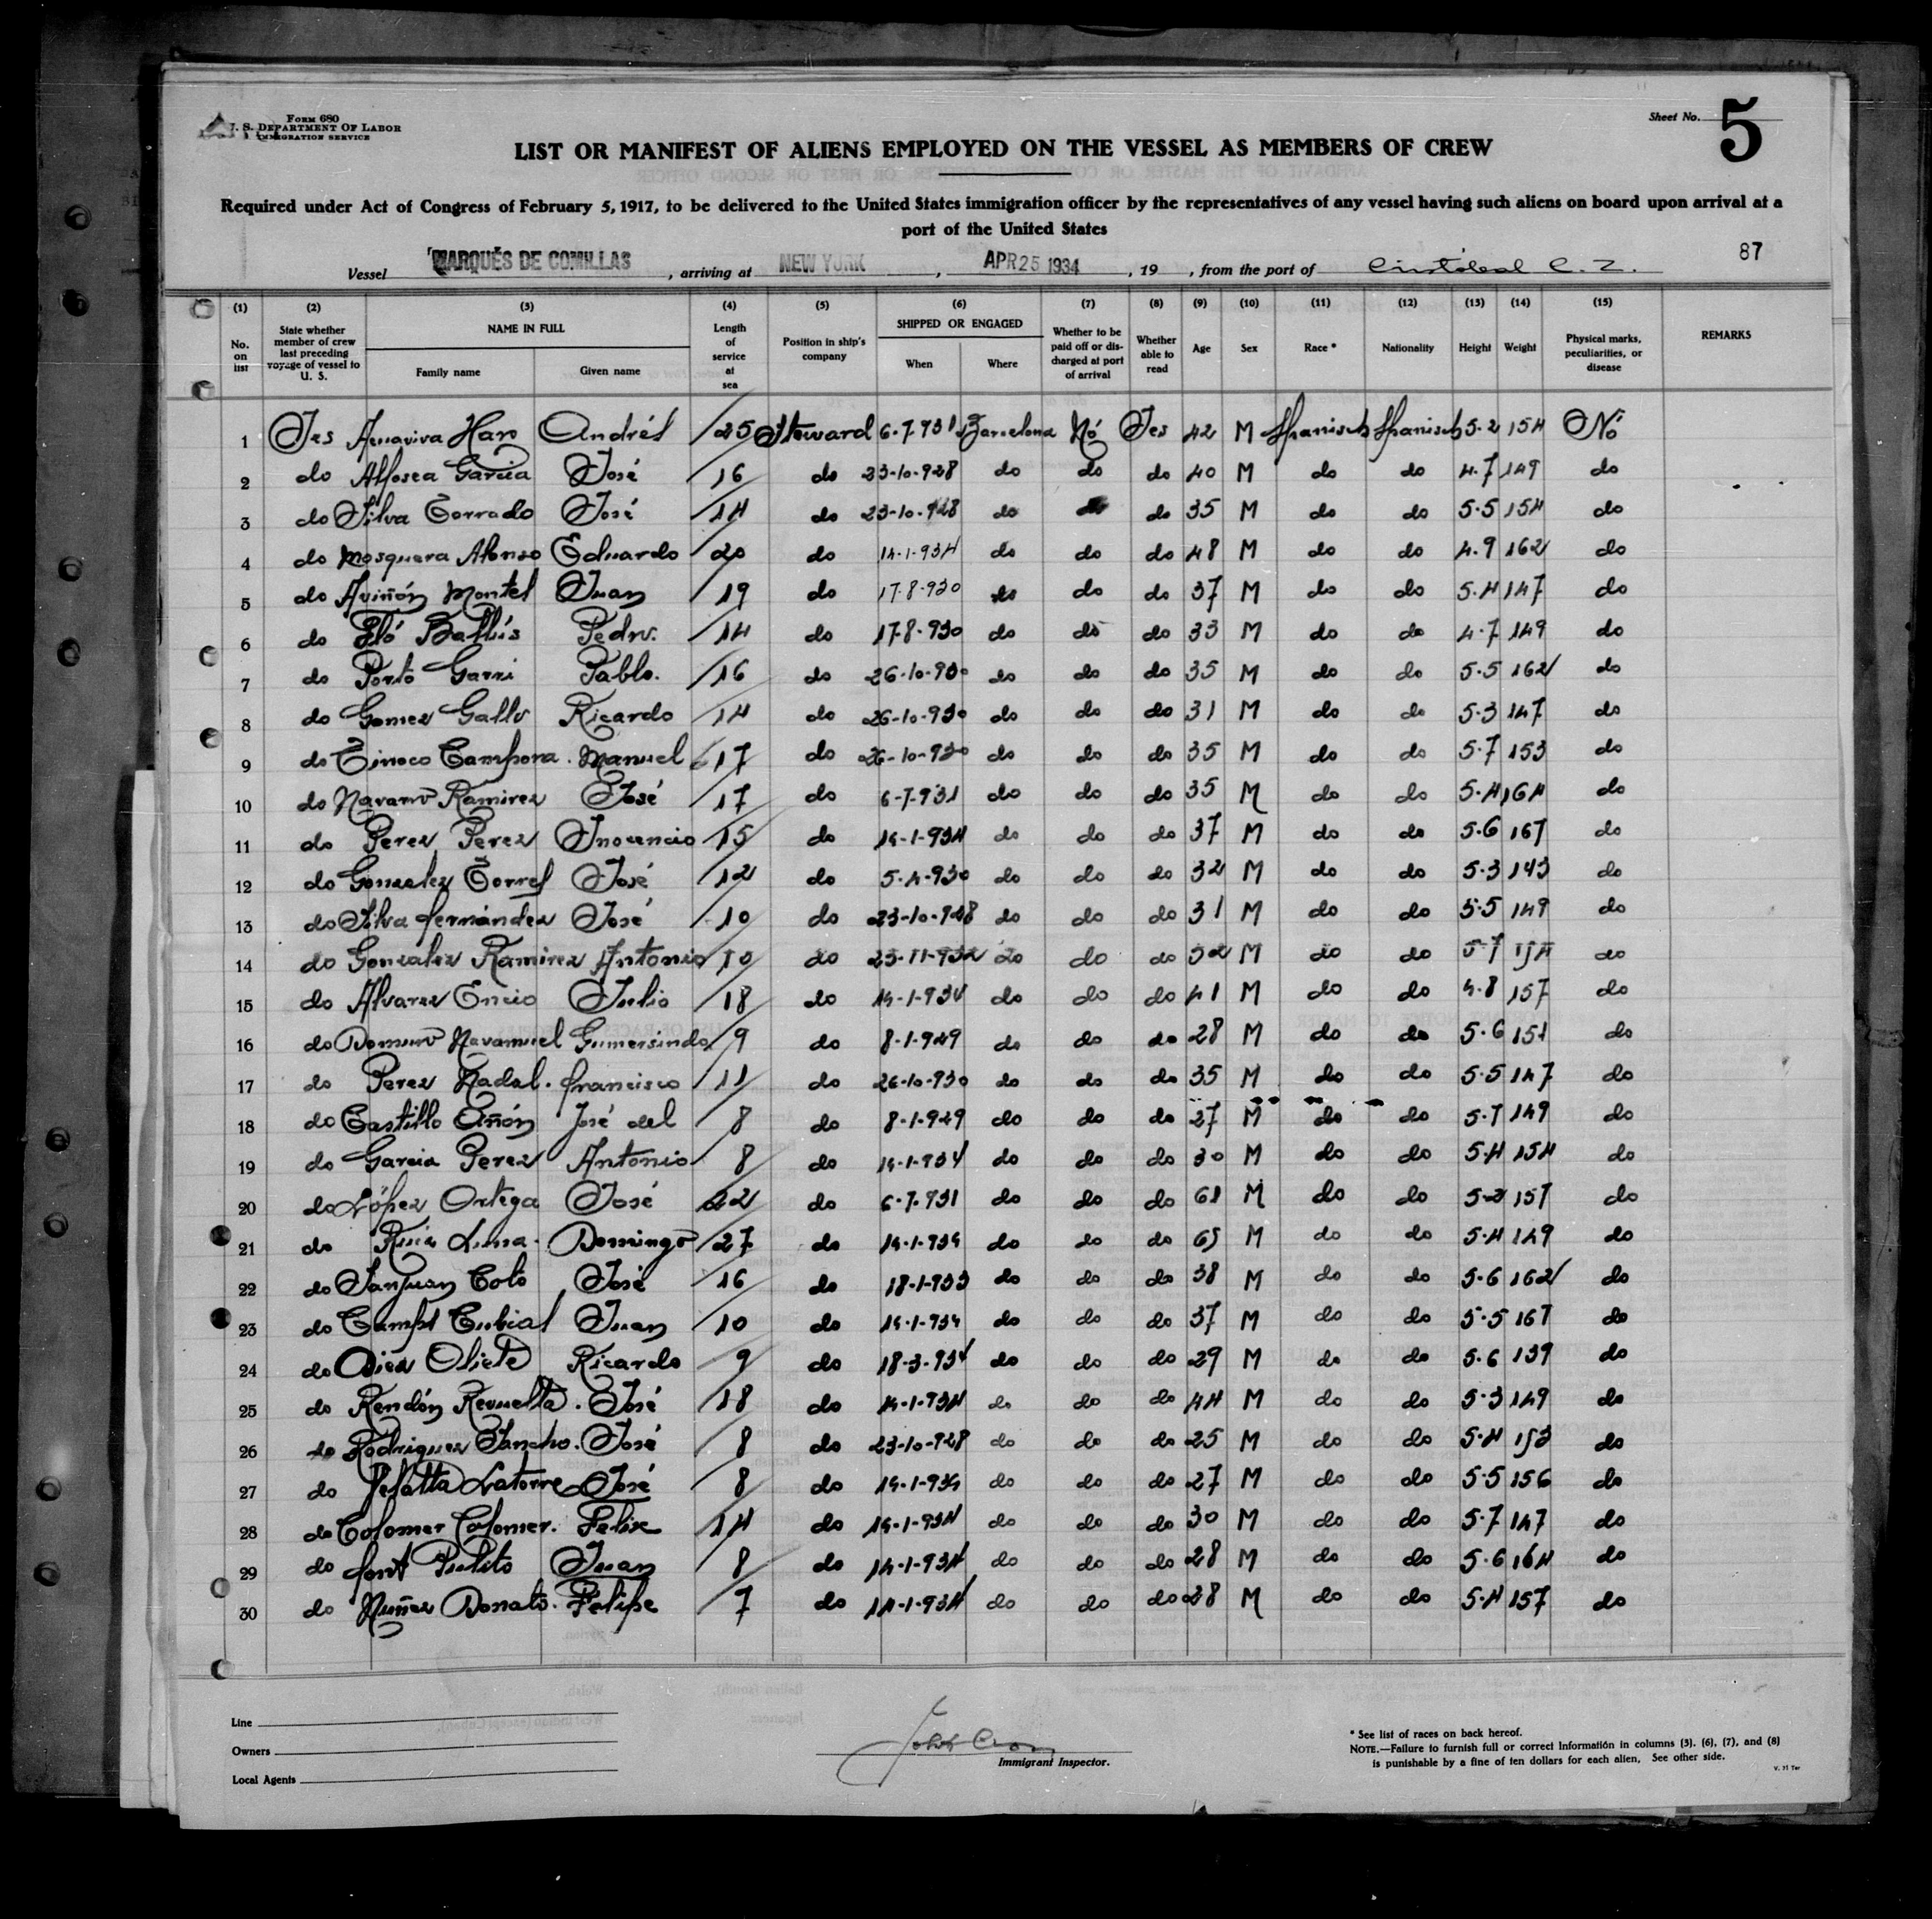 Form 680
U. S. DEPARTMENT OF LABOR
IMMIGRATION SERVICE
Sheet No. 5
LIST OR MANIFEST OF ALIENS EMPLOYED ON THE VESSEL AS MEMBERS OF CREW
Required under Act of Congress of February 5, 1917, to be delivered to the United States immigration officer by the representatives of any vessel having such aliens on board upon arrival at a
port of the United States
87
Vessel MARQUÉS DE COMILLAS, arriving at NEW YORK, APR 25 1934, 19 , from the port of Cristobal C. Z.
(1) (2) (3) (4) (5) (6) (7) (8) (9) (10) (11) (12) (13) (14) (15)
No. on list State whether member of crew last preceding voyage of vessel to U. S. NAME IN FULL Family name Given name Length of service at sea Position in ship's company SHIPPED OR ENGAGED When Where Whether to be paid off or discharged at port of arrival Whether able to read Age Sex Race * Nationality Height Weight Physical marks, peculiarities, or disease REMARKS
1 Yes Haro Andrés 25 Steward 6-7-931 Barcelona Nó Yes 42 M Spanisch Spanisch 5-2 154 Nó
2 do Garcia José 16 do 23-10-928 do do do 40 M do do 4-7 149 do
3 do Silva Torrado José 14 do 23-10-928 do do do 35 M do do 5-5 154 do
4 do Mosquera Alonso Eduardo 20 do 14-1-934 do do do 48 M do do 4-9 162 do
5 do Aviñón Montel Juan 19 do 17-8-930 do do do 37 M do do 5-4 147 do
6 do Pedro. 14 do 17-8-930 do do do 33 M do do 4-7 149 do
7 do Porto Garri Pablo. 16 do 26-10-930 do do do 35 M do do 5-5 162 do
8 do Gomez Gallo Ricardo 14 do 26-10-930 do do do 31 M do do 5-3 147 do
9 do Tinoco Campora. Manuel 17 do 26-10-930 do do do 35 M do do 5-7 153 do
10 do Navarro Ramirez José 17 do 6-7-931 do do do 35 M do do 5-4 164 do
11 do Perez Perez Inocencio 15 do 14-1-934 do do do 37 M do do 5-6 167 do
12 do Gonzalez Torres José 12 do 5-4-930 do do do 32 M do do 5-3 143 do
13 do Silva fernández José 10 do 23-10-928 do do do 31 M do do 5-5 149 do
14 do Gonzalez Ramirez Antonio 10 do 23-11-932 do do do 32 M do do 5-7 154 do
15 do Alvarez Encio Julio 18 do 14-1-934 do do do 41 M do do 4-8 157 do
16 do Navamuel Gumersindo 9 do 8-1-929 do do do 28 M do do 5-6 151 do
17 do Perez Nadal. francisco 11 do 26-10-930 do do do 35 M do do 5-5 147 do
18 do Castillo Añón José del 8 do 8-1-929 do do do 27 M do do 5-7 149 do
19 do Garcia Perez Antonio 8 do 14-1-934 do do do 30 M do do 5-4 154 do
20 do López Ortega José 22 do 6-7-931 do do do 61 M do do 5-2 157 do
21 do Ruiz Luna. Domingo 27 do 14-1-934 do do do 65 M do do 5-4 149 do
22 do Sanjuan Coto José 16 do 18-1-933 do do do 38 M do do 5-6 162 do
23 do Camps Cubial Juan 10 do 14-1-934 do do do 37 M do do 5-5 167 do
24 do Oliete Ricardo 9 do 18-3-934 do do do 29 M do do 5-6 139 do
25 do Rendón Revuelta. José 18 do 14-1-934 do do do 44 M do do 5-3 149 do
26 do Rodriguez Sancho. José 8 do 23-10-928 do do do 25 M do do 5-4 153 do
27 do Latorre José 8 do 14-1-934 do do do 27 M do do 5-5 156 do
28 do Colomer Colomer. Felix 14 do 14-1-934 do do do 30 M do do 5-7 147 do
29 do font Pulito Juan 8 do 14-1-934 do do do 28 M do do 5-6 164 do
30 do Nuñez Donato. Felipe 7 do 14-1-934 do do do 28 M do do 5-4 157 do
Line
Owners
Local Agents
Immigrant Inspector.
* See list of races on back hereof.
NOTE.—Failure to furnish full or correct information in columns (3), (6), (7), and (8)
is punishable by a fine of ten dollars for each alien. See other side.